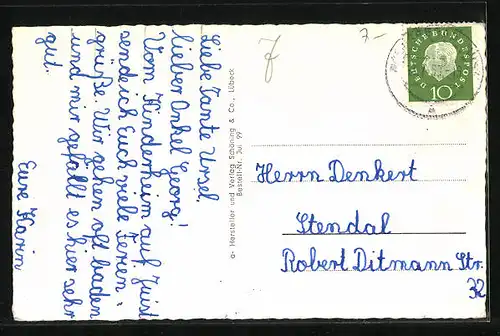 Liebe Tante Ursel,
lieber Onkel Georg!
Vom Kinderheim auf Juist
sende ich Euch viele Ferien-
grüße. Wir gehen oft baden
und mir gefällt es hier sehr
gut.
Eure Karin
a- Hersteller und Verlag Schöning & Co., Lübeck
Bestell-Nr. Ju 99
7-
DEUTSCHE BUNDESPOST
10
Herrn Denkert
Stendal
Robert Ditmann Str.
32